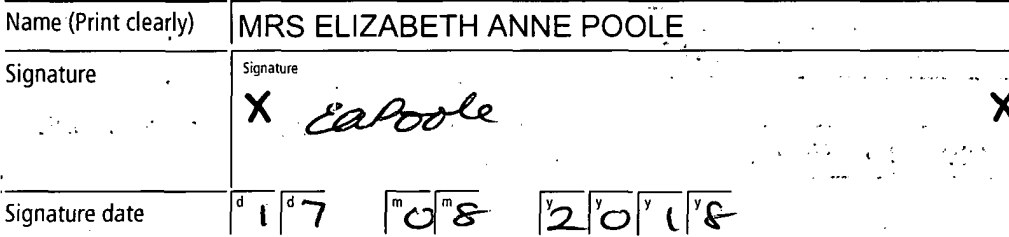 Name (Print clearly) MRS ELIZABETH ANNE POOLE
Signature Signature
X eaPoole X
Signature date d 1 d 7 m 0 m 8 y 2 y 0 y 1 y 8